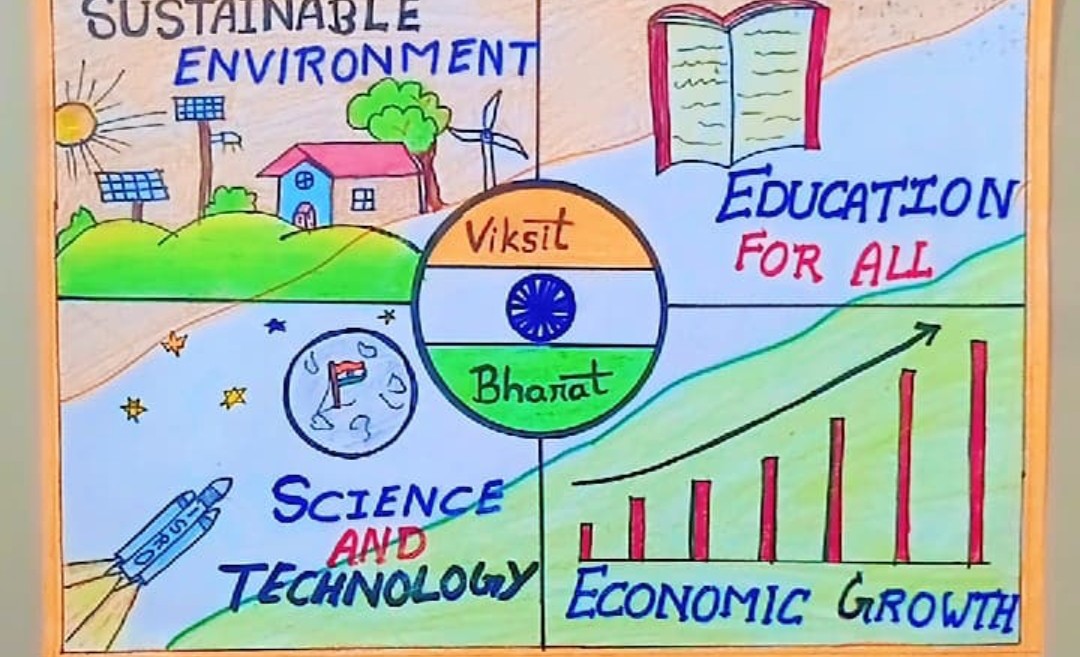 SUSTAINABLE
ENVIRONMENT
EDUCATION
FOR ALL
Viksit
Bharat
ISRO
SCIENCE
AND
TECHNOLOGY
ECONOMIC GROWTH